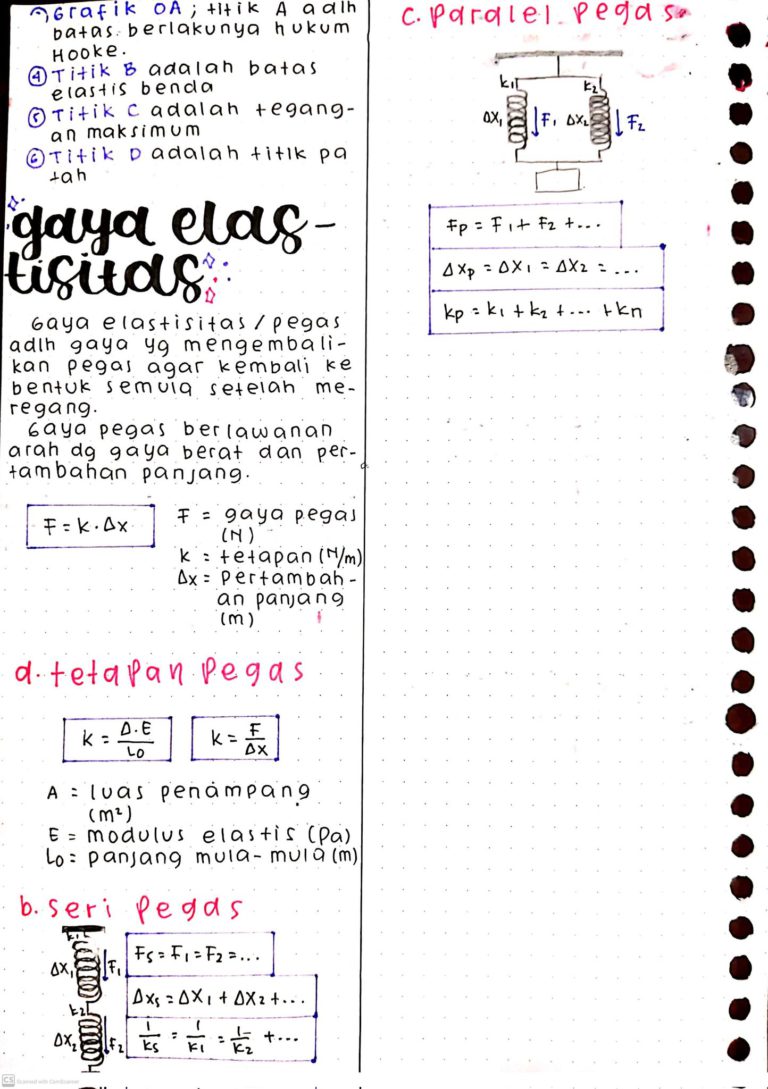 ③Grafik OA ; titik A adlh
batas berlakunya hukum
Hooke.
④Titik B adalah batas
elastis benda
⑤Titik C adalah tegang-
an maksimum
⑥Titik D adalah titik pa
tah
gaya elas-
tisitas
Gaya elastisitas/pegas
adlh gaya yg mengembali-
kan pegas agar kembali ke
bentuk semula setelah me-
regang.
Gaya pegas berlawanan
arah dg gaya berat dan per-
tambahan panjang.
F = k . Δx
F = gaya pegas
(N)
k = tetapan (N/m)
Δx = pertambah-
an panjang
(m)
a. tetapan pegas
k = Δ.E/Lo
k = F/Δx
A = luas penampang
(m²)
E = modulus elastis (Pa)
Lo = panjang mula-mula (m)
b. seri pegas
k1
Δx1
F1
k2
Δx2
F2
Fs = F1 = F2 = ...
Δxs = Δx1 + Δx2 + ...
1/ks = 1/k1 = 1/k2 + ...
c. Paralel pegas
k1
k2
Δx1
F1
Δx2
F2
Fp = F1 + F2 + ...
Δxp = Δx1 = Δx2 = ...
kp = k1 + k2 + ... + kn
CS Scanned with CamScanner